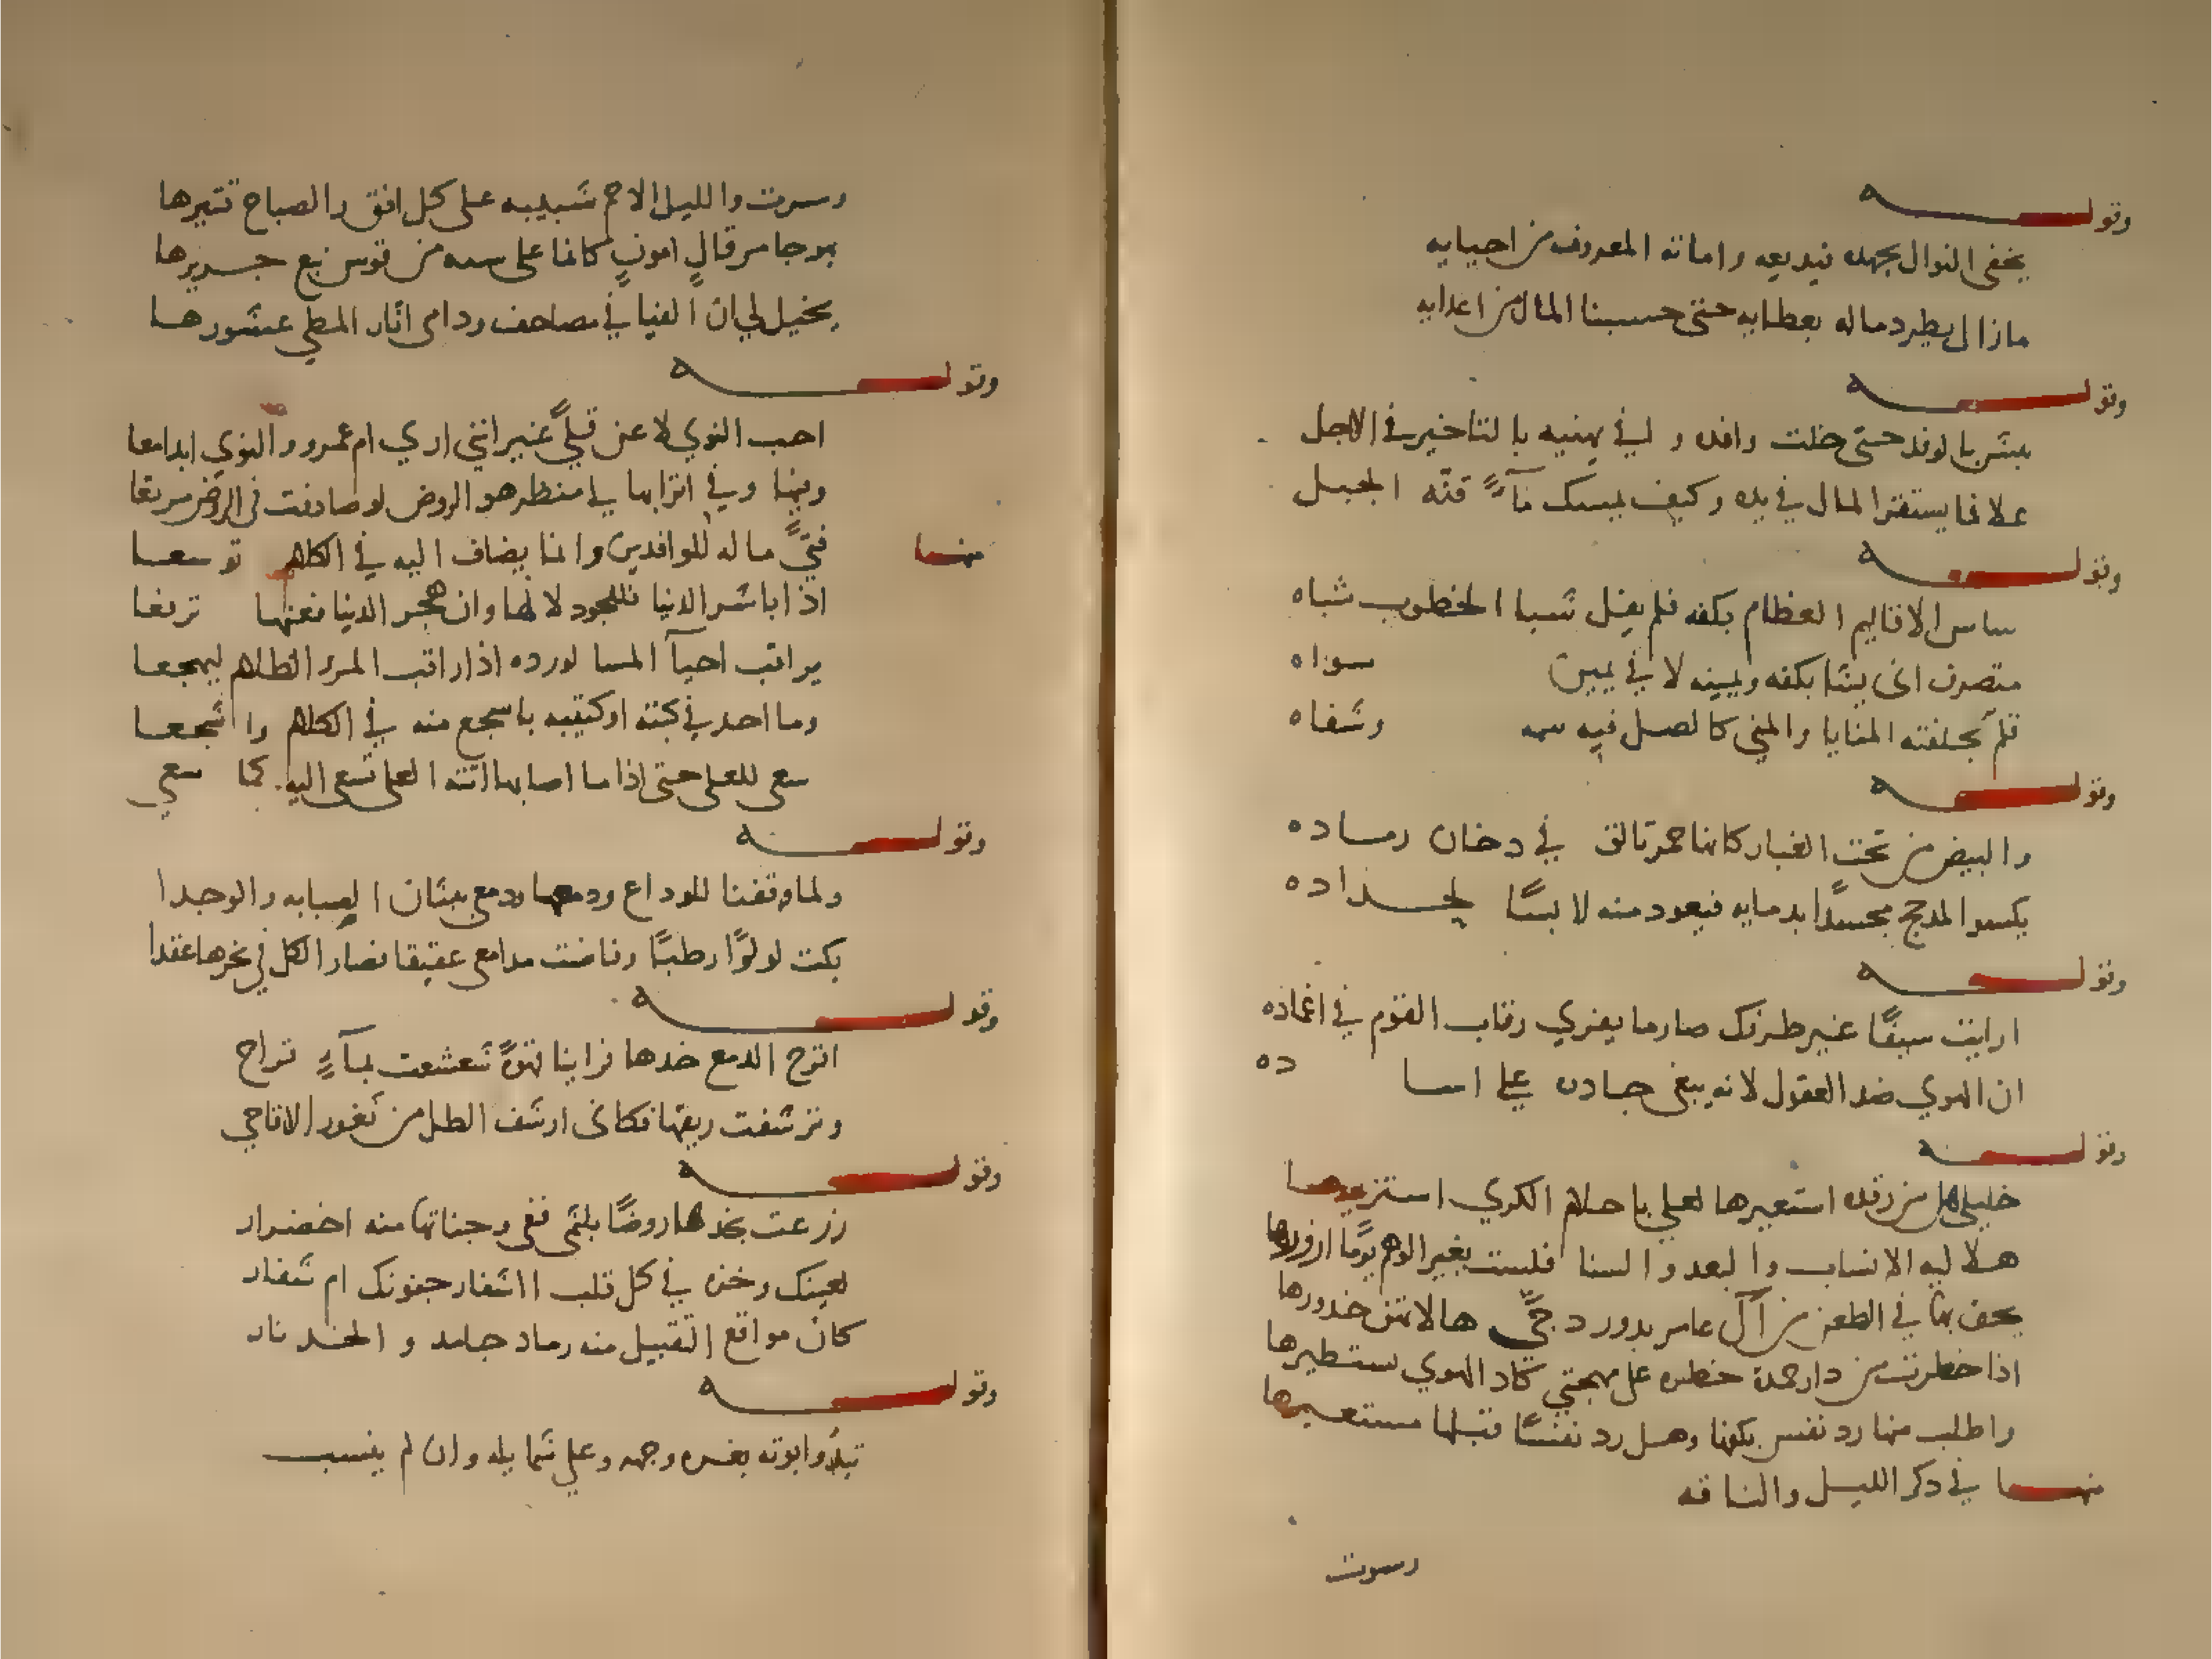 وقولــــه
يخفى النوال بجهده فيديعه واماته المعروف من احيايه
مازال يطرد ماله بعطايه حتى حسبنا المال من اعدايه
وقولــــه
يبشر بالوفد حتى خلت وافده و ليفي يهنيه بالتاخير في الاجل
علا فما يستقر المال في يده وكيف يمسك مآءً قنّه الجبل
وقولــــه
ساس الاقاليم العظام بكفه قلم يفل شبا الخطوب شباه
متصرف انى يشا بكفه ويمينه لا في يمين سواه
قلم بحلفته المنايا والمنى كالصل فيه سمه وشفاه
وقولــــه
والبيض من تحت الغبار كانها جمر تالق في دخان رماده
يكسوا المدجج مجسدًا بدمايه فيعود منه لابسًا لحداده
وقولــــه
ارايت سيفًا غير طرفك صارما يفري رقاب القوم في اغماده
ان الهوي ضد العقول لانه يبغى جاده علي اساده
وقولــــه
خليلي هل من رقده استعيرها لعلي باحلام الكري استزيرها
هلاليه الانساب والبعد والسنا فلست بغير الوهم يومًا ازورها
يحف بها في الظعن من آل عامر بدور دجيً هالاتهن خدورها
اذا خطرت من دار حمدة خطره على مهجتي كاد الهوي يستطيرها
واطلب منها رد نفس بكفها وهل رد نفسًا قبلها مستعيرها
منهــا في ذكر الليل والناقه
وسرت
وسرت والليل الاحم شبيبه على كل افق والصباح قتيرها
بوجا مرقالٍ امونٍ كانما على سمه من قوس نبع جريرها
يخيل لي ان الفيا في مصاحف ودامى اثار المطي عشورها
وقولــــه
احب النوي لا عن قليً غير انني اري ام عمرو والنوي ابدا معا
وبها وفي اترابها لي منظر هو الروض لو صادفت في الروض مربعا
منهــا فتيً ماله للوافدين وانما يضاف اليه في الكلام توسعا
اذا باشر الدنيا فللجود لا لها وان هجر الدنيا فعنها ترفعا
يراقب احيآ المسا لورده اذا راقب المرء الظلام ليهجعا
وما احد في كتبه او كتيبه باسجع منه في الكلام واشجعا
سعى للعلى حتى اذا ما اصابها اتته العلى تسعى اليه كما سعي
وقولــــه
ولما وقفنا للوداع ودمعها ودمعي يبثان الصبابه والوجدا
بكت لولوًا رطبًا وفاضت مدامعي عقيقا فصار الكل في نحرها عقدا
وقولــــه
اقرح الدمع خدها فراينا قهوةً شعشعت بمآءٍ قراح
وترشفت ريقها فكانى ارشف الطل من ثغور الاقاحي
وقولــــه
زرعت بخدها روضًا بلثمى ففى وجناتها منه اخضرار
لعينك وخزه في كل قلب ااشفار جفونك ام شفار
كان مواقع التقبيل منه رماد جامد و الخد نار
وقولــــه
تبدوا ابوته بغره وجهه وعلي شمايله وان لم ينسب